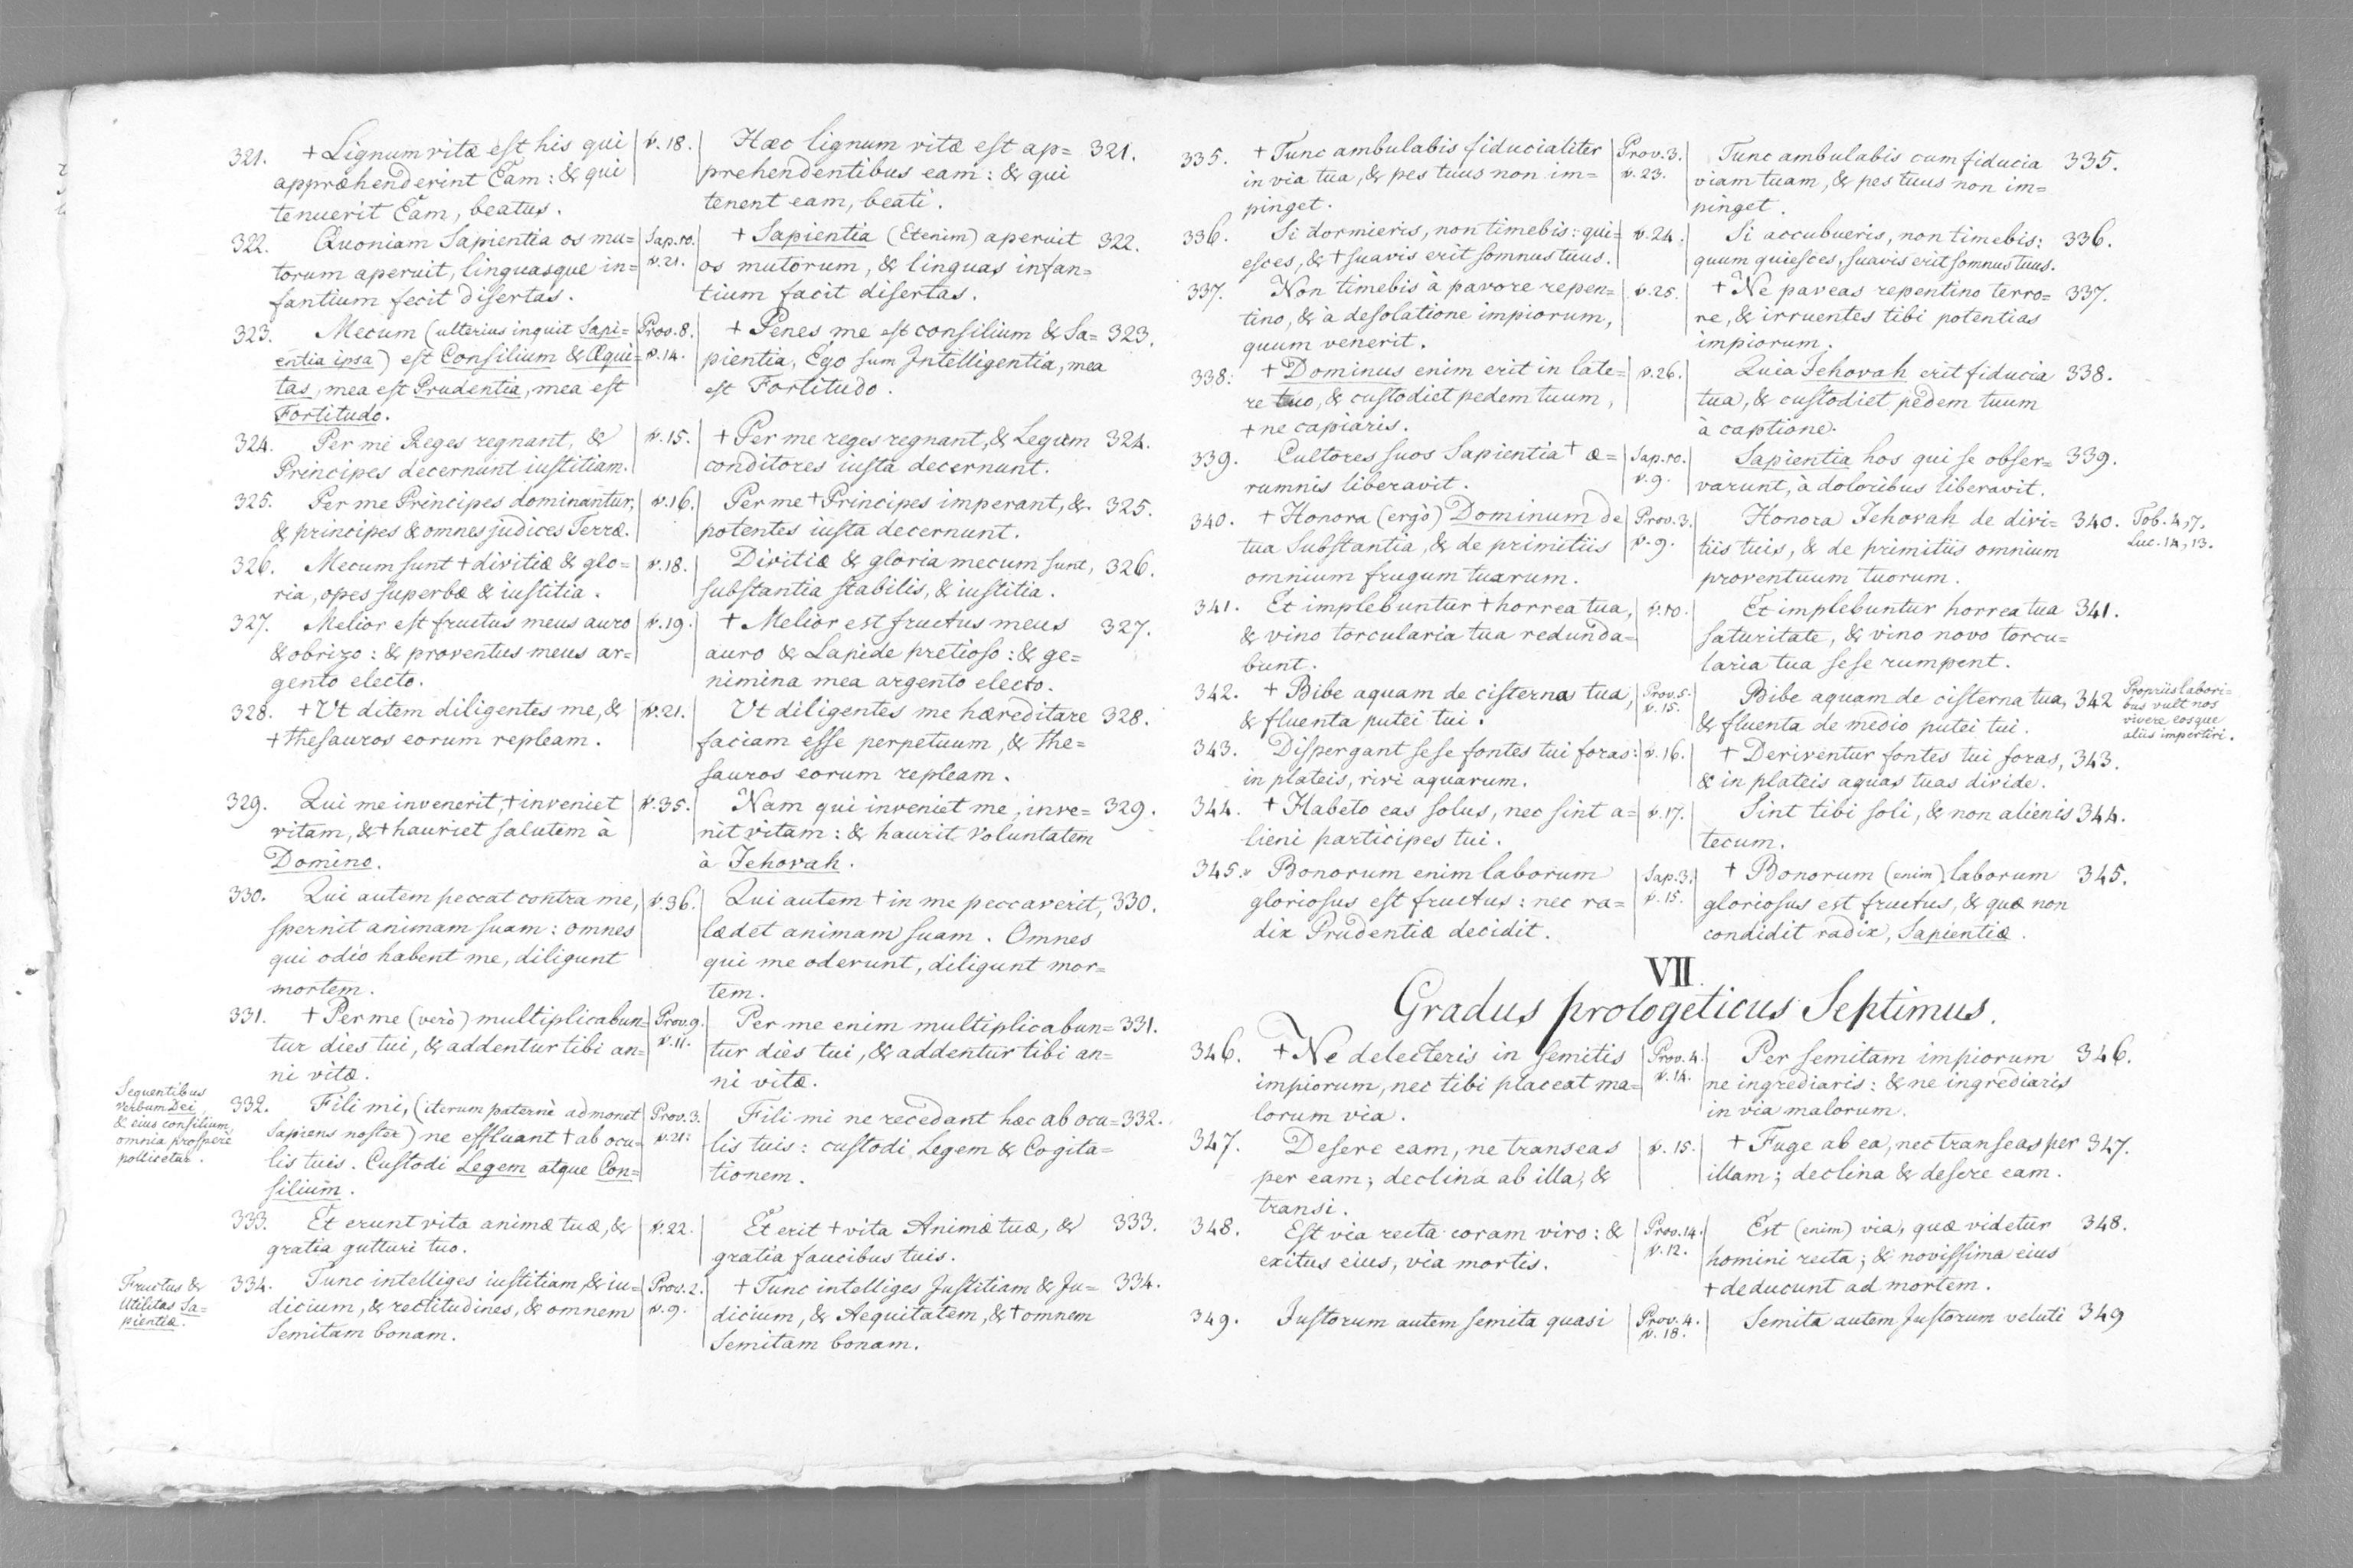 321. + Lignum vitæ est his qui
appræhenderint Eam: & qui
tenuerit Eam, beatus.
v. 18.
Hæc lignum vitæ est ap= 321.
prehendentibus eam: & qui
tenent eam, beati.
322. Quoniam Sapientia os mu=
torum aperuit, linguasque in=
fantium fecit disertas.
Sap. 10.
v. 21.
+ Sapientia (Etenim) aperuit 322.
os mutorum, & linguas infan=
tium facit disertas.
323. Mecum (ulterius inquit Sapi=
entia ipsa) est Consilium & Æqui=
tas, mea est Prudentia, mea est
Fortitudo.
Prov. 8.
v. 14.
+ Penes me est consilium & Sa= 323.
pientia, Ego sum Intelligentia, mea
est Fortitudo.
324. Per me Reges regnant, &
Principes decernunt iustitiam.
v. 15.
+ Per me reges regnant, & Legum 324.
conditores iusta decernunt.
325. Per me Principes dominantur,
& principes & omnes judices Terræ.
v. 16.
Per me + Principes imperant, & 325.
potentes iusta decernunt.
326. Mecum sunt + divitiæ & glo=
ria, opes superbæ & iustitia.
v. 18.
Divitiæ & gloria mecum sunt, 326.
substantia stabilis, & iustitia.
327. Melior est fructus meus auro
& obrizo: & proventus meus ar=
gento electo.
v. 19.
+ Melior est fructus meus 327.
auro & Lapide pretioso: & ge=
nimina mea argento electo.
328. + Vt ditem diligentes me, &
+ thesauros eorum repleam.
v. 21.
Vt diligentes me hæreditare 328.
faciam esse perpetuum, & the=
sauros eorum repleam.
329. Qui me invenerit, + inveniet
vitam, & + hauriet salutem à
Domino.
v. 35.
Nam qui inveniet me, inve= 329.
nit vitam: & haurit voluntatem
à Jehovah.
330. Qui autem peccat contra me,
spernit animam suam: omnes
qui odio habent me, diligunt
mortem.
v. 36.
Qui autem + in me peccaverit, 330.
lædet animam suam. Omnes
qui me oderunt, diligunt mor=
tem.
331. + Per me (verò) multiplicabun=
tur dies tui, & addentur tibi an=
ni vitæ.
Prov. 9.
v. 11.
Per me enim multiplicabun= 331.
tur dies tui, & addentur tibi an=
ni vitæ.
Sequentibus
Verbum Dei
& eius consilium,
omnia prospere
pollicetur.
332. Fili mi, (iterum paternè admonet
Sapiens noster) ne effluant + ab ocu=
lis tuis. Custodi Legem atque Con=
silium.
Prov. 3.
v. 21:
Fili mi ne recedant hæc ab ocu= 332.
lis tuis: custodi Legem & Cogita=
tionem.
333. Et erunt vita animæ tuæ, &
gratia gutturi tuo.
v. 22.
Et erit + vita Animæ tuæ, & 333.
gratia faucibus tuis.
Fructus &
Utilitas Sa=
pientiæ.
334. Tunc intelliges iustitiam, & iu=
dicium, & rectitudines, & omnem
Semitam bonam.
Prov. 2.
v. 9.
+ Tunc intelliges Justitiam & Ju= 334.
dicium, & Aequitatem, & + omnem
Semitam bonam.
335. + Tunc ambulabis fiducialiter
in via tua, & pes tuus non im=
pinget.
Prov. 3.
v. 23.
Tunc ambulabis cum fiducia 335.
viam tuam, & pes tuus non im=
pinget.
336. Si dormieris, non timebis: qui=
esces, & + suavis erit somnus tuus.
v. 24.
Si accubueris, non timebis: 336.
quum quiesces, suavis erit somnus tuus.
337. Non timebis à pavore repen=
tino, & à desolatione impiorum,
quum venerit.
v. 25.
+ Ne paveas repentino terro= 337.
re, & irruentes tibi potentias
impiorum.
338. + Dominus enim erit in late=
re tuo, & custodiet pedem tuum,
+ ne capiaris.
v. 26.
Quia Jehovah erit fiducia 338.
tua, & custodiet pedem tuum
à captione.
339. Cultores suos Sapientia + æ=
rumnis liberavit.
Sap. 10.
v. 9.
Sapientia hos qui se obser= 339.
varunt, à doloribus liberavit.
340. + Honora (ergò) Dominum de
tua Substantia, & de primitiis
omnium frugum tuarum.
Prov. 3.
v. 9.
Honora Jehovah de divi= 340.
tiis tuis, & de primitiis omnium
proventuum tuorum.
Tob. 4, 7.
Luc. 14, 13.
341. Et implebuntur + horrea tua,
& vino torcularia tua redunda=
bunt.
v. 10.
Et implebuntur horrea tua 341.
saturitate, & vino novo torcu=
laria tua sese rumpent.
342. + Bibe aquam de cisterna tua,
& fluenta putei tui.
Prov. 5.
v. 15.
Bibe aquam de cisterna tua, 342
& fluenta de medio putei tui.
Propriis labori=
bus vult nos
vivere eosque
aliis impertiri.
343. Dispergant sese fontes tui foras:
in plateis, rivi aquarum.
v. 16.
+ Deriventur fontes tui foras, 343.
& in plateis aquas tuas divide.
344. + Habeto eas solus, nec sint a=
lieni participes tui.
v. 17.
Sint tibi soli, & non alienis 344.
tecum.
345. Bonorum enim laborum
gloriosus est fructus: nec ra=
dix Prudentiæ decidit.
Sap. 3.
v. 15.
+ Bonorum (enim) laborum 345.
gloriosus est fructus, & quæ non
condidit radix, Sapientiæ.
VII.
Gradus prologeticus Septimus.
346. + Ne delecteris in semitis
impiorum, nec tibi placeat ma=
lorum via.
Prov. 4.
v. 14.
Per semitam impiorum 346.
ne ingrediaris: & ne ingrediaris
in via malorum.
347. Desere eam, ne transeas
per eam; declina ab illa, &
transi.
v. 15.
+ Fuge ab ea, nec transeas per 347.
illam; declina & desere eam.
348. Est via recta coram viro: &
exitus eius, via mortis.
Prov. 14.
v. 12.
Est (enim) via, quæ videtur 348.
homini recta; & novissima eius
+ deducunt ad mortem.
349. Justorum autem semita quasi
Prov. 4.
v. 18.
Semita autem Justorum veluti 349